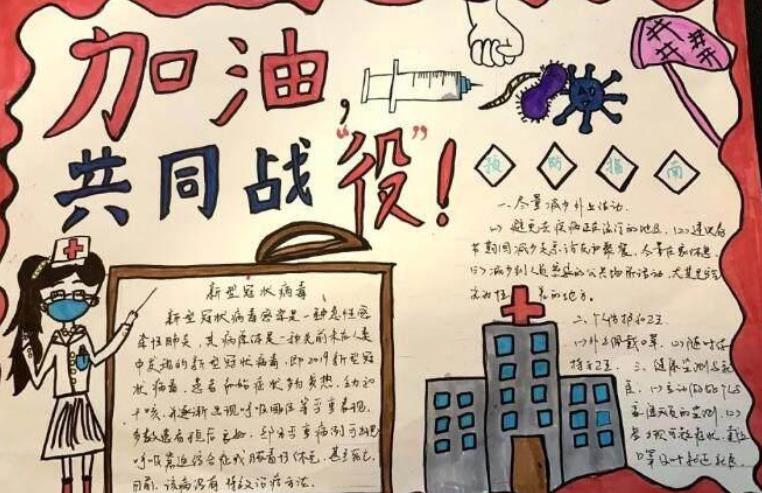 加油,
共同战"役"!
预防指南
一、尽量减少外出活动.
(1) 避免去疾病正在流行的地区. (2) 建议春
节期间减少走亲访友和聚餐, 尽量在家休息.
(3) 减少到人员密集的公共场所活动, 尤其是空
气 的地方。
二、个人防护和卫
(1) 外出佩戴口罩. (2) 随时保
持手卫. 三、健康监测与就
医. (1) 主动
新型冠状病毒
新型冠状病毒感染是一种急性感
染性肺炎, 其病原体是一种先前未在人类
中发现的新型冠状病毒, 即2019新型冠
状病毒, 患者初始症状多为发热、乏力和
干咳, 并逐渐出现呼吸困难等严重表现.
多数患者预后良好, 部分严重病例可出现
呼吸窘迫综合征或脓毒性休克, 甚至死亡.
目前, 该病没有特效治疗方法.